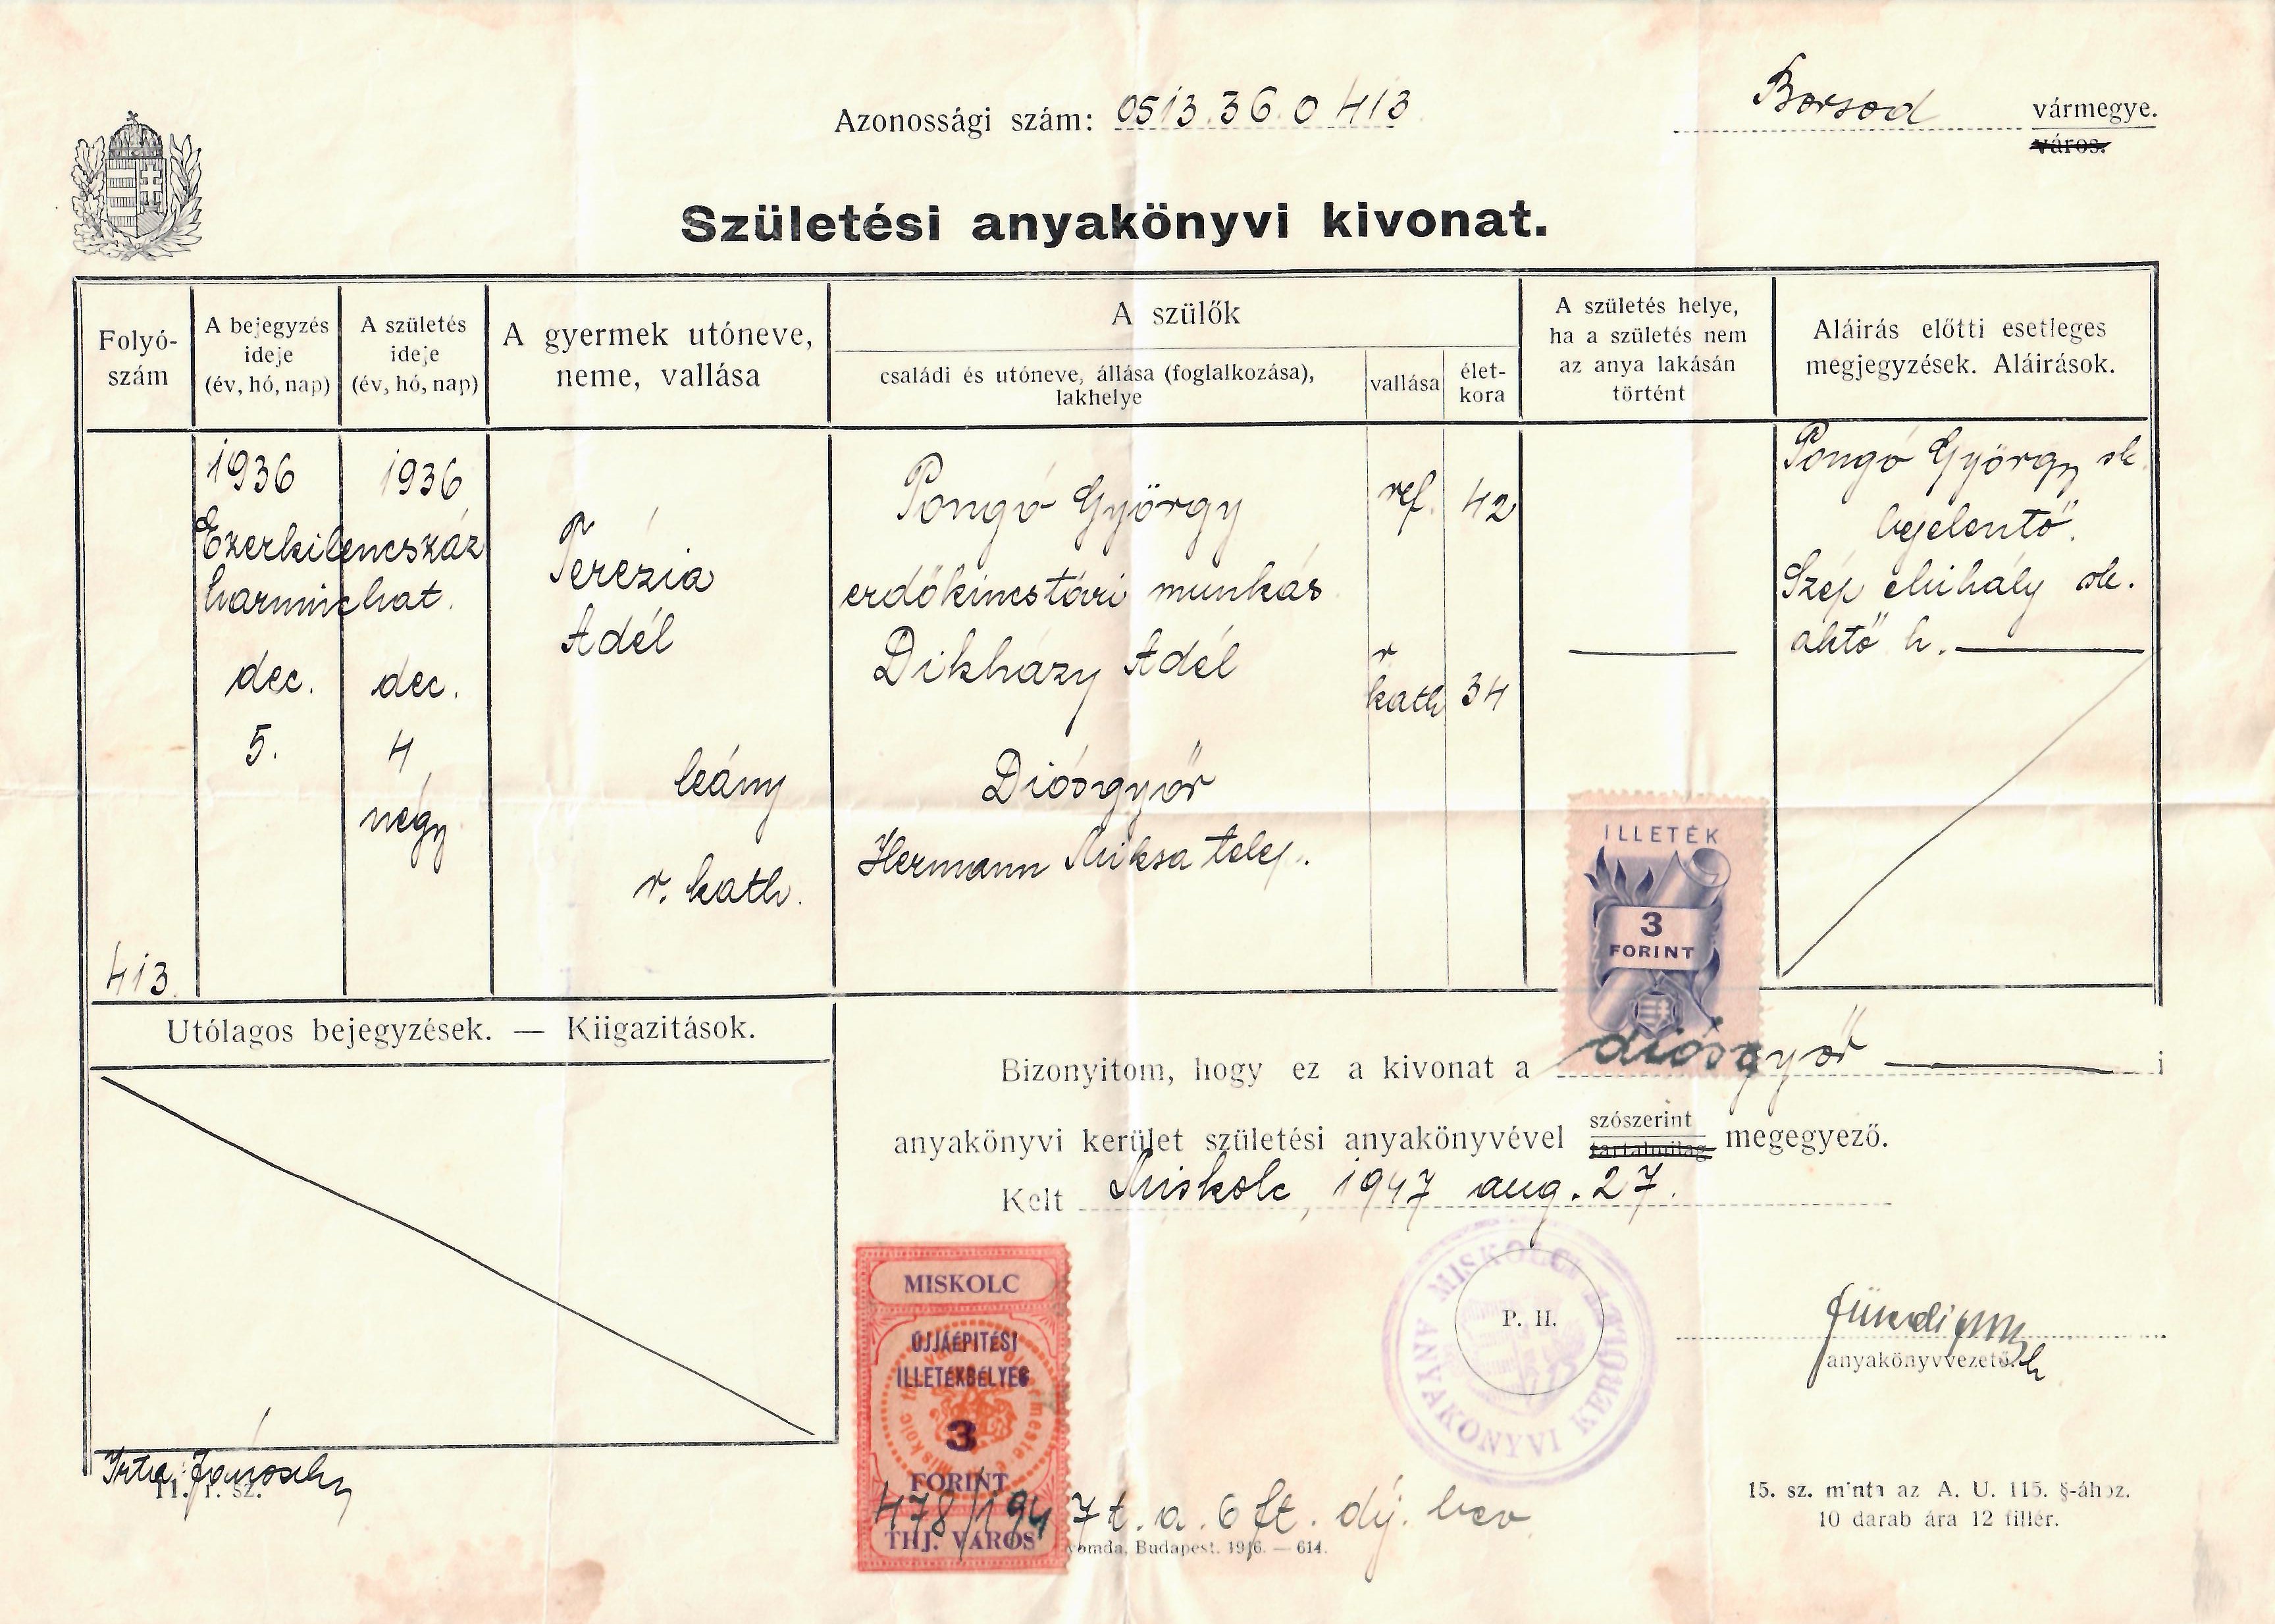 Azonossági szám: 0513.36.0413
Borsod vármegye.
város.
Születési anyakönyvi kivonat.
Folyó-
szám
A bejegyzés
ideje
(év, hó, nap)
A születés
ideje
(év, hó, nap)
A gyermek utóneve,
neme, vallása
A szülők
családi és utóneve, állása (foglalkozása),
lakhelye
vallása
élet-
kora
A születés helye,
ha a születés nem
az anya lakásán
történt
Aláírás előtti esetleges
megjegyzések. Aláírások.
413.
1936 1936
Ezerkilencszáz
harminchat.
dec. dec.
5. 4
négy
Terézia
Adél
leány
r. kath.
Pongó György ref. 42
erdőkincstári munkás
Dikházy Adél r
kath 34
Diósgyőr
Hermann Miksa telep.
Pongó György sk.
bejelentő.
Szép Mihály sk.
aktő h.
Utólagos bejegyzések. — Kiigazitások.
ILLETÉK
3
FORINT
Bizonyitom, hogy ez a kivonat a diósgyőr i
anyakönyvi kerület születési anyakönyvével szószerint megegyező.
tartalmilag
Kelt Miskolc, 1947 aug. 27.
MISKOLC
ÚJJÁÉPITÉSI
ILLETÉKBÉLYEG
3
FORINT
THJ. VÁROS
MISKOLCI ANYAKÖNYVI KERÜLET
P. H.
anyakönyvvezető.
h
Irta:
11. r. sz.
478/1947 t. a. 6 ft. díj. bev
Budapest. 1916. — 614.
15. sz. minta az A. U. 115. §-ához.
10 darab ára 12 fillér.